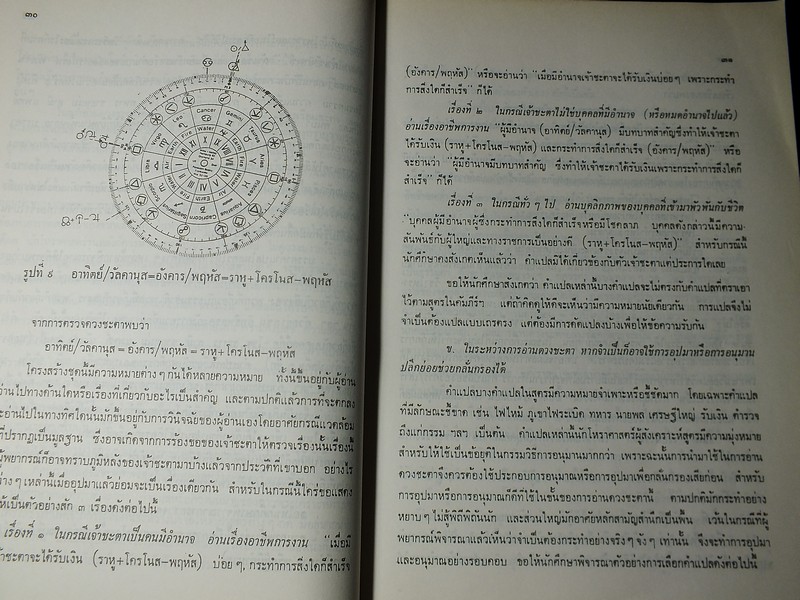 ๓๐
Cancer
Gemini
Leo
Virgo
Libra
Water
Fire
Earth
Air
Aries
Capricorn
Aquarius
รูปที่ ๙ อาทิตย์/วัลคานุส=อังคาร/พฤหัส=ราหู+โครโนส-พฤหัส
จากการตรวจดวงชะตาพบว่า
อาทิตย์/วัลคานุส = อังคาร/พฤหัส = ราหู+โครโนส-พฤหัส
โครงสร้างชุดนี้มีความหมายต่าง ๆ กันได้หลายความหมาย ทั้งนี้ขึ้นอยู่กับผู้อ่าน
ว่านไปทางด้านใดหรือเรื่องที่เกี่ยวกับอะไรเป็นสำคัญ และตามปกติแล้วการที่จะตกลง
ะอ่านไปในทางทิศใดนั้นมักขึ้นอยู่กับการวินิจฉัยของผู้อ่านเองโดยอาศัยกรณีแวดล้อม
ที่ปรากฏเป็นมูลฐาน ซึ่งอาจเกิดจากการร้องขอของเจ้าชะตาให้ตรวจเรื่องนั้นเรื่องนี้
ผู้พยากรณ์ก็อาจทราบภูมิหลังของเจ้าชะตามาบ้างแล้วจากประวัติที่เขาบอก อย่างไร
ต่าง ๆ เหล่านี้เมื่ออุปมาแล้วย่อมจะเป็นเรื่องเดียวกัน สำหรับในกรณีนี้ใคร่ขอแสดง
ให้เป็นตัวอย่างสัก ๓ เรื่องดังต่อไปนี้
เรื่องที่ ๑ ในกรณีเจ้าชะตาเป็นคนมีอำนาจ อ่านเรื่องอาชีพการงาน "เมื่อมี
จ้าชะตาจะได้รับเงิน (ราหู+โครโนส-พฤหัส) บ่อย ๆ, กระทำการสิ่งใดก็สำเร็จ
๓๑
(อังคาร/พฤหัส)" หรือจะอ่านว่า "เมื่อมีอำนาจเจ้าชะตาจะได้รับเงินบ่อย ๆ เพราะกระทำ
การสิ่งใดก็สำเร็จ" ก็ได้
เรื่องที่ ๒ ในกรณีเจ้าชะตาไม่ใช่บุคคลที่มีอำนาจ (หรือหมดอำนาจไปแล้ว)
อ่านเรื่องอาชีพการงาน "ผู้มีอำนาจ (อาทิตย์/วัลคานุส) มีบทบาทสำคัญซึ่งทำให้เจ้าชะตา
ได้รับเงิน (ราหู+โครโนส-พฤหัส) และกระทำการสิ่งใดก็สำเร็จ (อังคาร/พฤหัส)" หรือ
จะอ่านว่า "ผู้มีอำนาจมีบทบาทสำคัญ ซึ่งทำให้เจ้าชะตาได้รับเงินเพราะกระทำการสิ่งใดก็
สำเร็จ" ก็ได้
เรื่องที่ ๓ ในกรณีทั่ว ๆ ไป อ่านบุคลิกภาพของบุคคลที่เข้ามาพัวพันกับชีวิต
"บุคคลผู้มีอำนาจผู้ซึ่งกระทำการสิ่งใดก็สำเร็จหรือมีโชคลาภ บุคคลดังกล่าวนี้มีความ-
สัมพันธ์กับผู้ใหญ่และทางราชการเป็นอย่างดี (ราหู+โครโนส-พฤหัส)" สำหรับกรณีนี้
นักศึกษาคงสังเกตเห็นแล้วว่า คำแปลมิได้เกี่ยวข้องกับตัวเจ้าชะตาแต่ประการใดเลย
ขอให้นักศึกษาสังเกตว่า คำแปลเหล่านี้บางคำแปลจะไม่ตรงกับคำแปลที่ตราเอา
ไว้ตามสูตรในคัมภีร์ฯ แต่ถ้าคิดดูให้ดีจะเห็นว่ามีความหมายนัยเดียวกัน การแปลจึงไม่
จำเป็นต้องแปลแบบเถรตรง แต่ต้องมีการดัดแปลงบ้างเพื่อให้ข้อความรับกัน
ข. ในระหว่างการอ่านดวงชะตา หากจำเป็นก็อาจใช้การอุปมาหรือการอนุมาน
ปลีกย่อยช่วยกลั่นกรองได้
คำแปลบางคำแปลในสูตรมีความหมายจำเพาะหรือชี้ชัดมาก โดยเฉพาะคำแปล
ที่มีลักษณะชี้ขาด เช่น ไฟไหม้ ภูเขาไฟระเบิด ทหาร นายพล เศรษฐีใหญ่ รับเงิน ตำรวจ
ถึงแก่กรรม ฯลฯ เป็นต้น คำแปลเหล่านี้นักโหราศาสตร์ผู้สังเคราะห์สูตรมีความมุ่งหมาย
สำหรับให้ใช้เป็นข้อยุติในกรรมวิธีการอนุมานมากกว่า เพราะฉะนั้นการนำมาใช้ในการอ่าน
ดวงชะตาจึงควรต้องใช้ประกอบการอนุมานหรือการอุปมาเพื่อกลั่นกรองเสียก่อน สำหรับ
การอุปมาหรือการอนุมาณก็ดีที่ใช้ในขั้นของการอ่านดวงชะตานี้ ตามปกติมักกระทำอย่าง
หยาบ ๆ ไม่สู้พิถีพิถันนัก และส่วนใหญ่มักอาศัยหลักสามัญสำนึกเป็นพื้น เว้นในกรณีที่ผู้
พยากรณ์พิจารณาแล้วเห็นว่าจำเป็นต้องกระทำอย่างจริง ๆ จัง ๆ เท่านั้น จึงจะทำการอุปมา
และอนุมาณอย่างรอบคอบ ขอให้นักศึกษาพิจารณาตัวอย่างการเลือกคำแปลดังต่อไปนี้